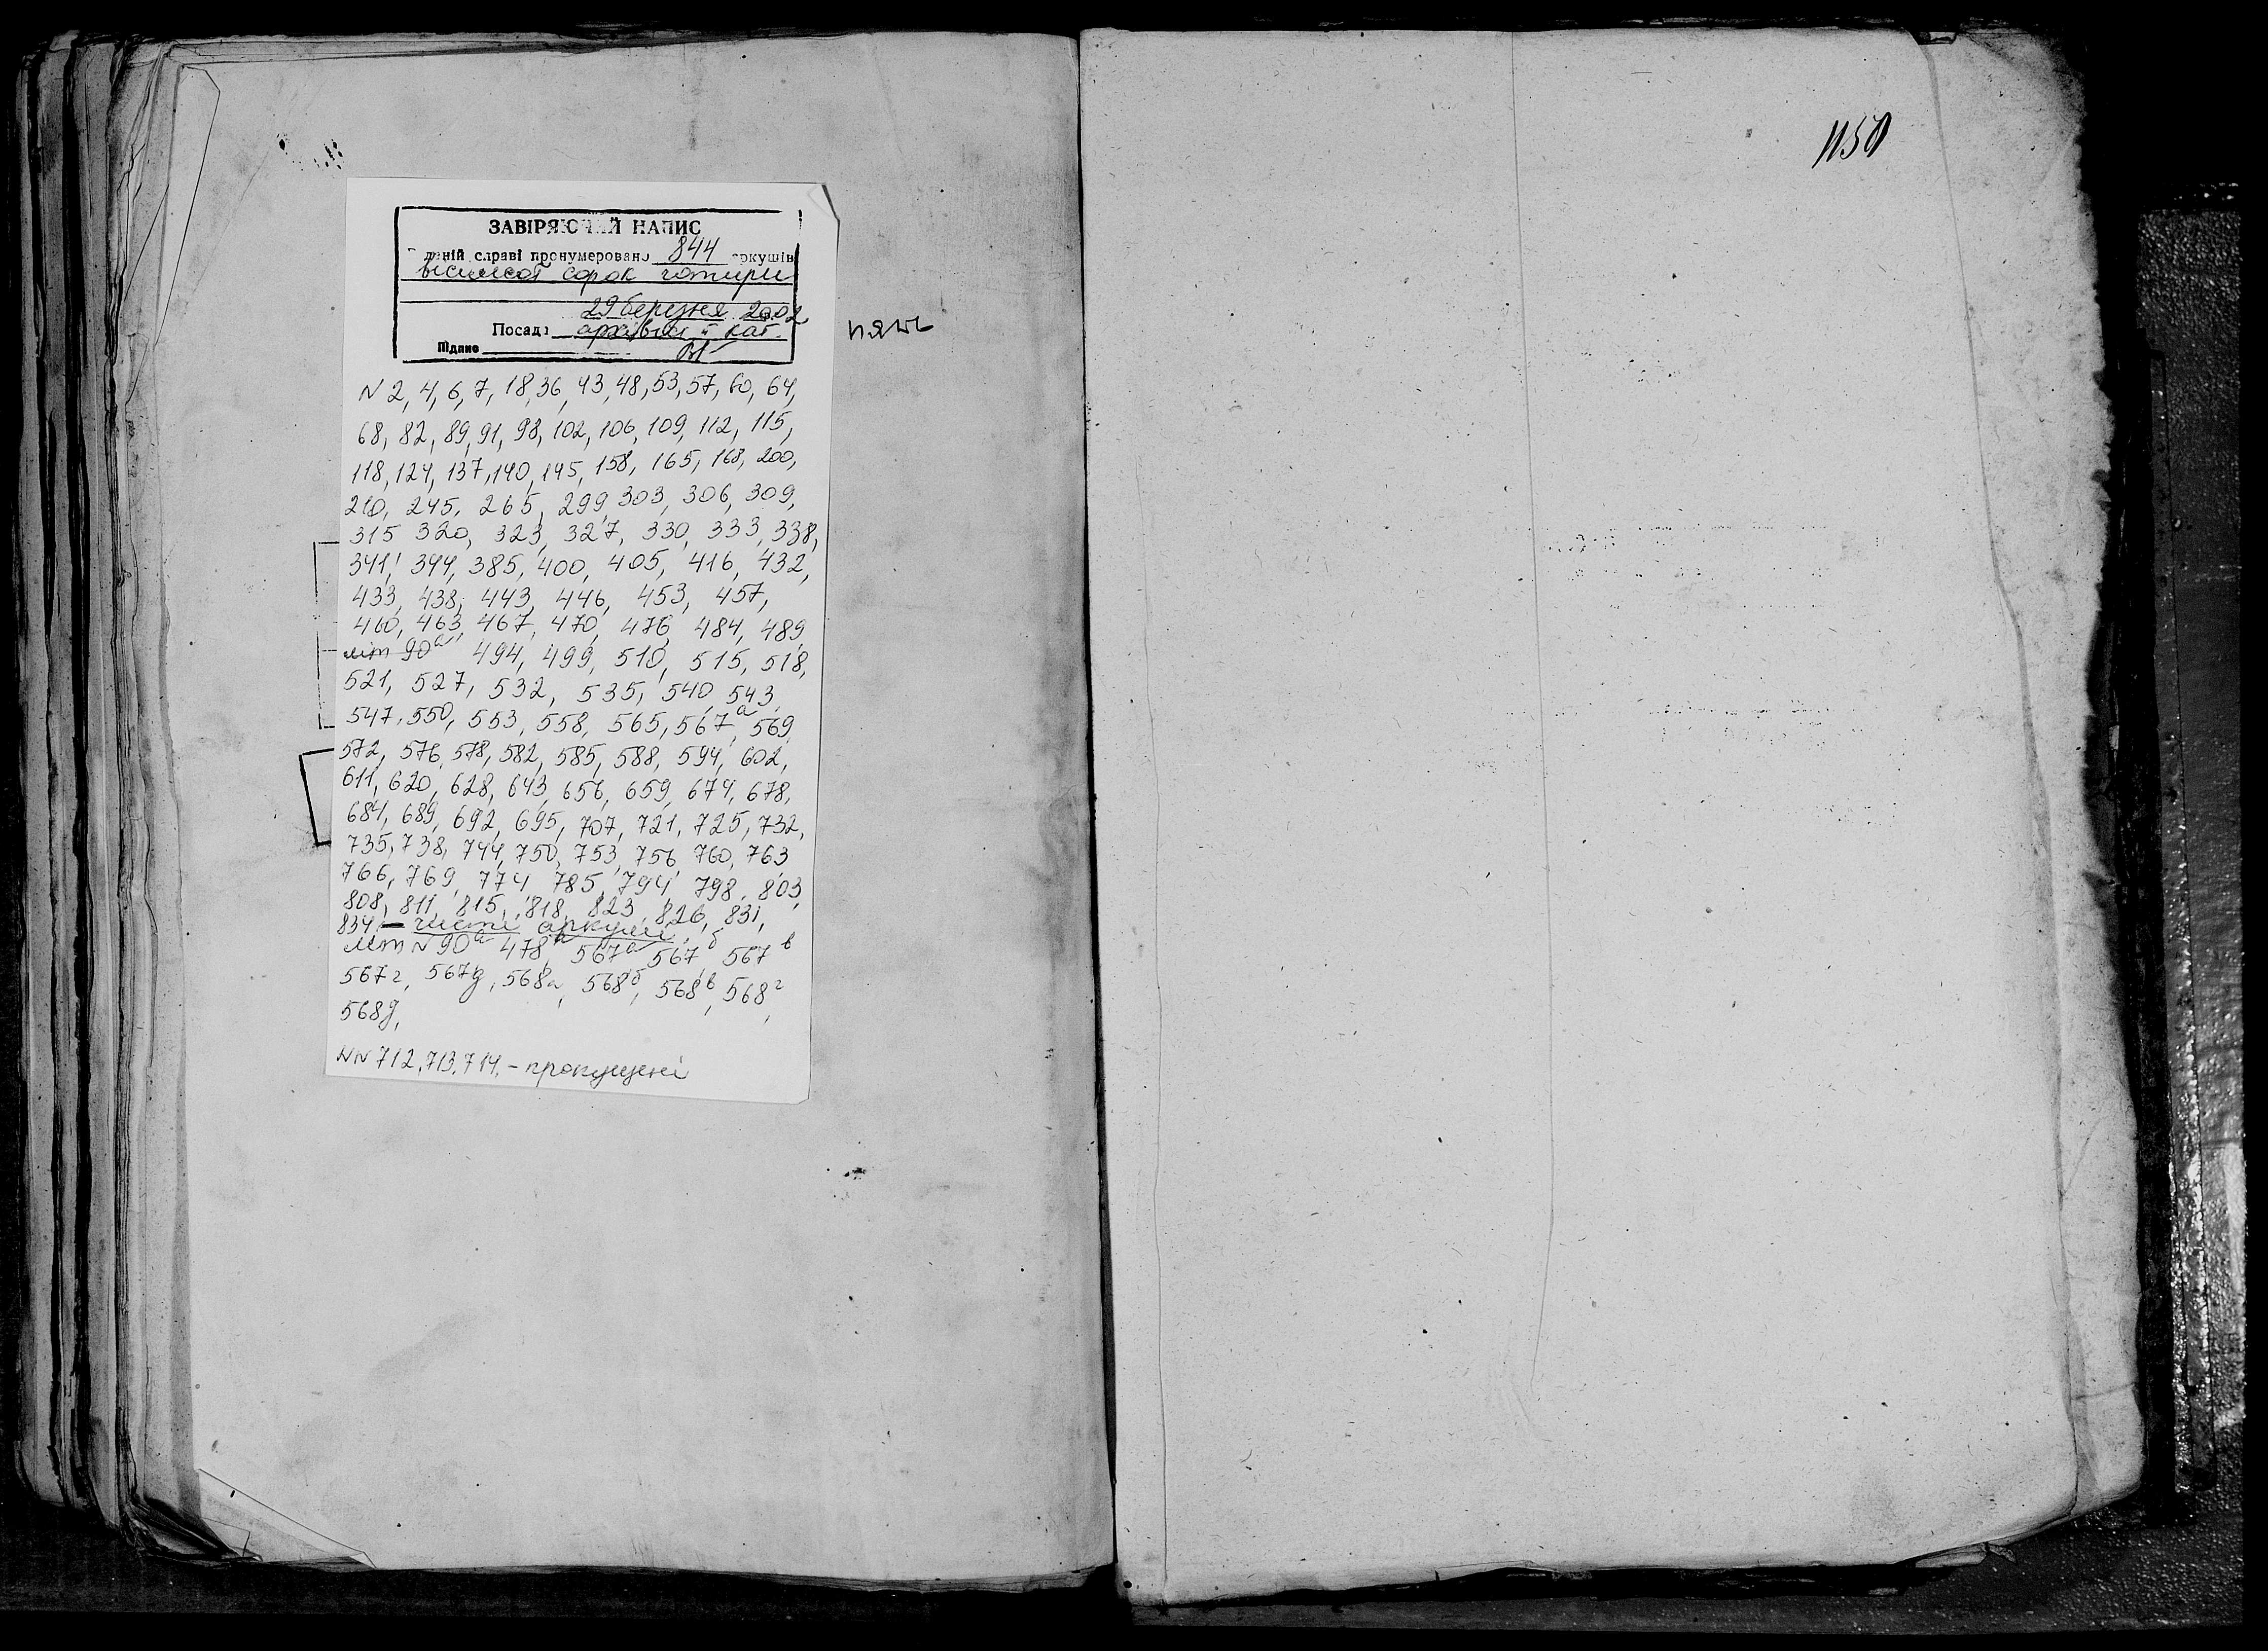 ЗАВІРЯЮЧИЙ НАПИС
даній справі пронумеровано 844 аркушів
вісімсот сорок чотири
29 березня 2002
Посада архівіст II кат.
Підпис
N 2, 4, 6, 7, 18, 36, 43, 48, 53, 57, 60, 64,
68, 82, 89, 91, 98, 102, 106, 109, 112, 115,
118, 124, 137, 140, 145, 158, 165, 168, 200,
210, 245, 265, 299, 303, 306, 309,
315 320, 323, 327, 330, 333, 338,
341, 344, 385, 400, 405, 416, 432,
433, 438, 443, 446, 453, 457,
460, 463, 467, 470, 476, 484, 489
літ 90а 494, 499, 510, 515, 518,
521, 527, 532, 535, 540, 543,
547, 550, 553, 558, 565, 567а, 569,
572, 576, 578, 582, 585, 588, 594, 602,
611, 620, 628, 643, 656, 659, 674, 678,
684, 689, 692, 695, 707, 721, 725, 732,
735, 738, 744, 750, 753, 756 760, 763
766, 769, 774 785, 794, 798, 803,
808, 811, 815, 818, 823, 826, 831,
834 – чисті аркуші,
літ N 90а 478а, 567а 567б 567в
567г, 567д, 568а, 568б, 568в, 568г,
568д,
NN 712, 713, 714, – пропущені
пять
1150